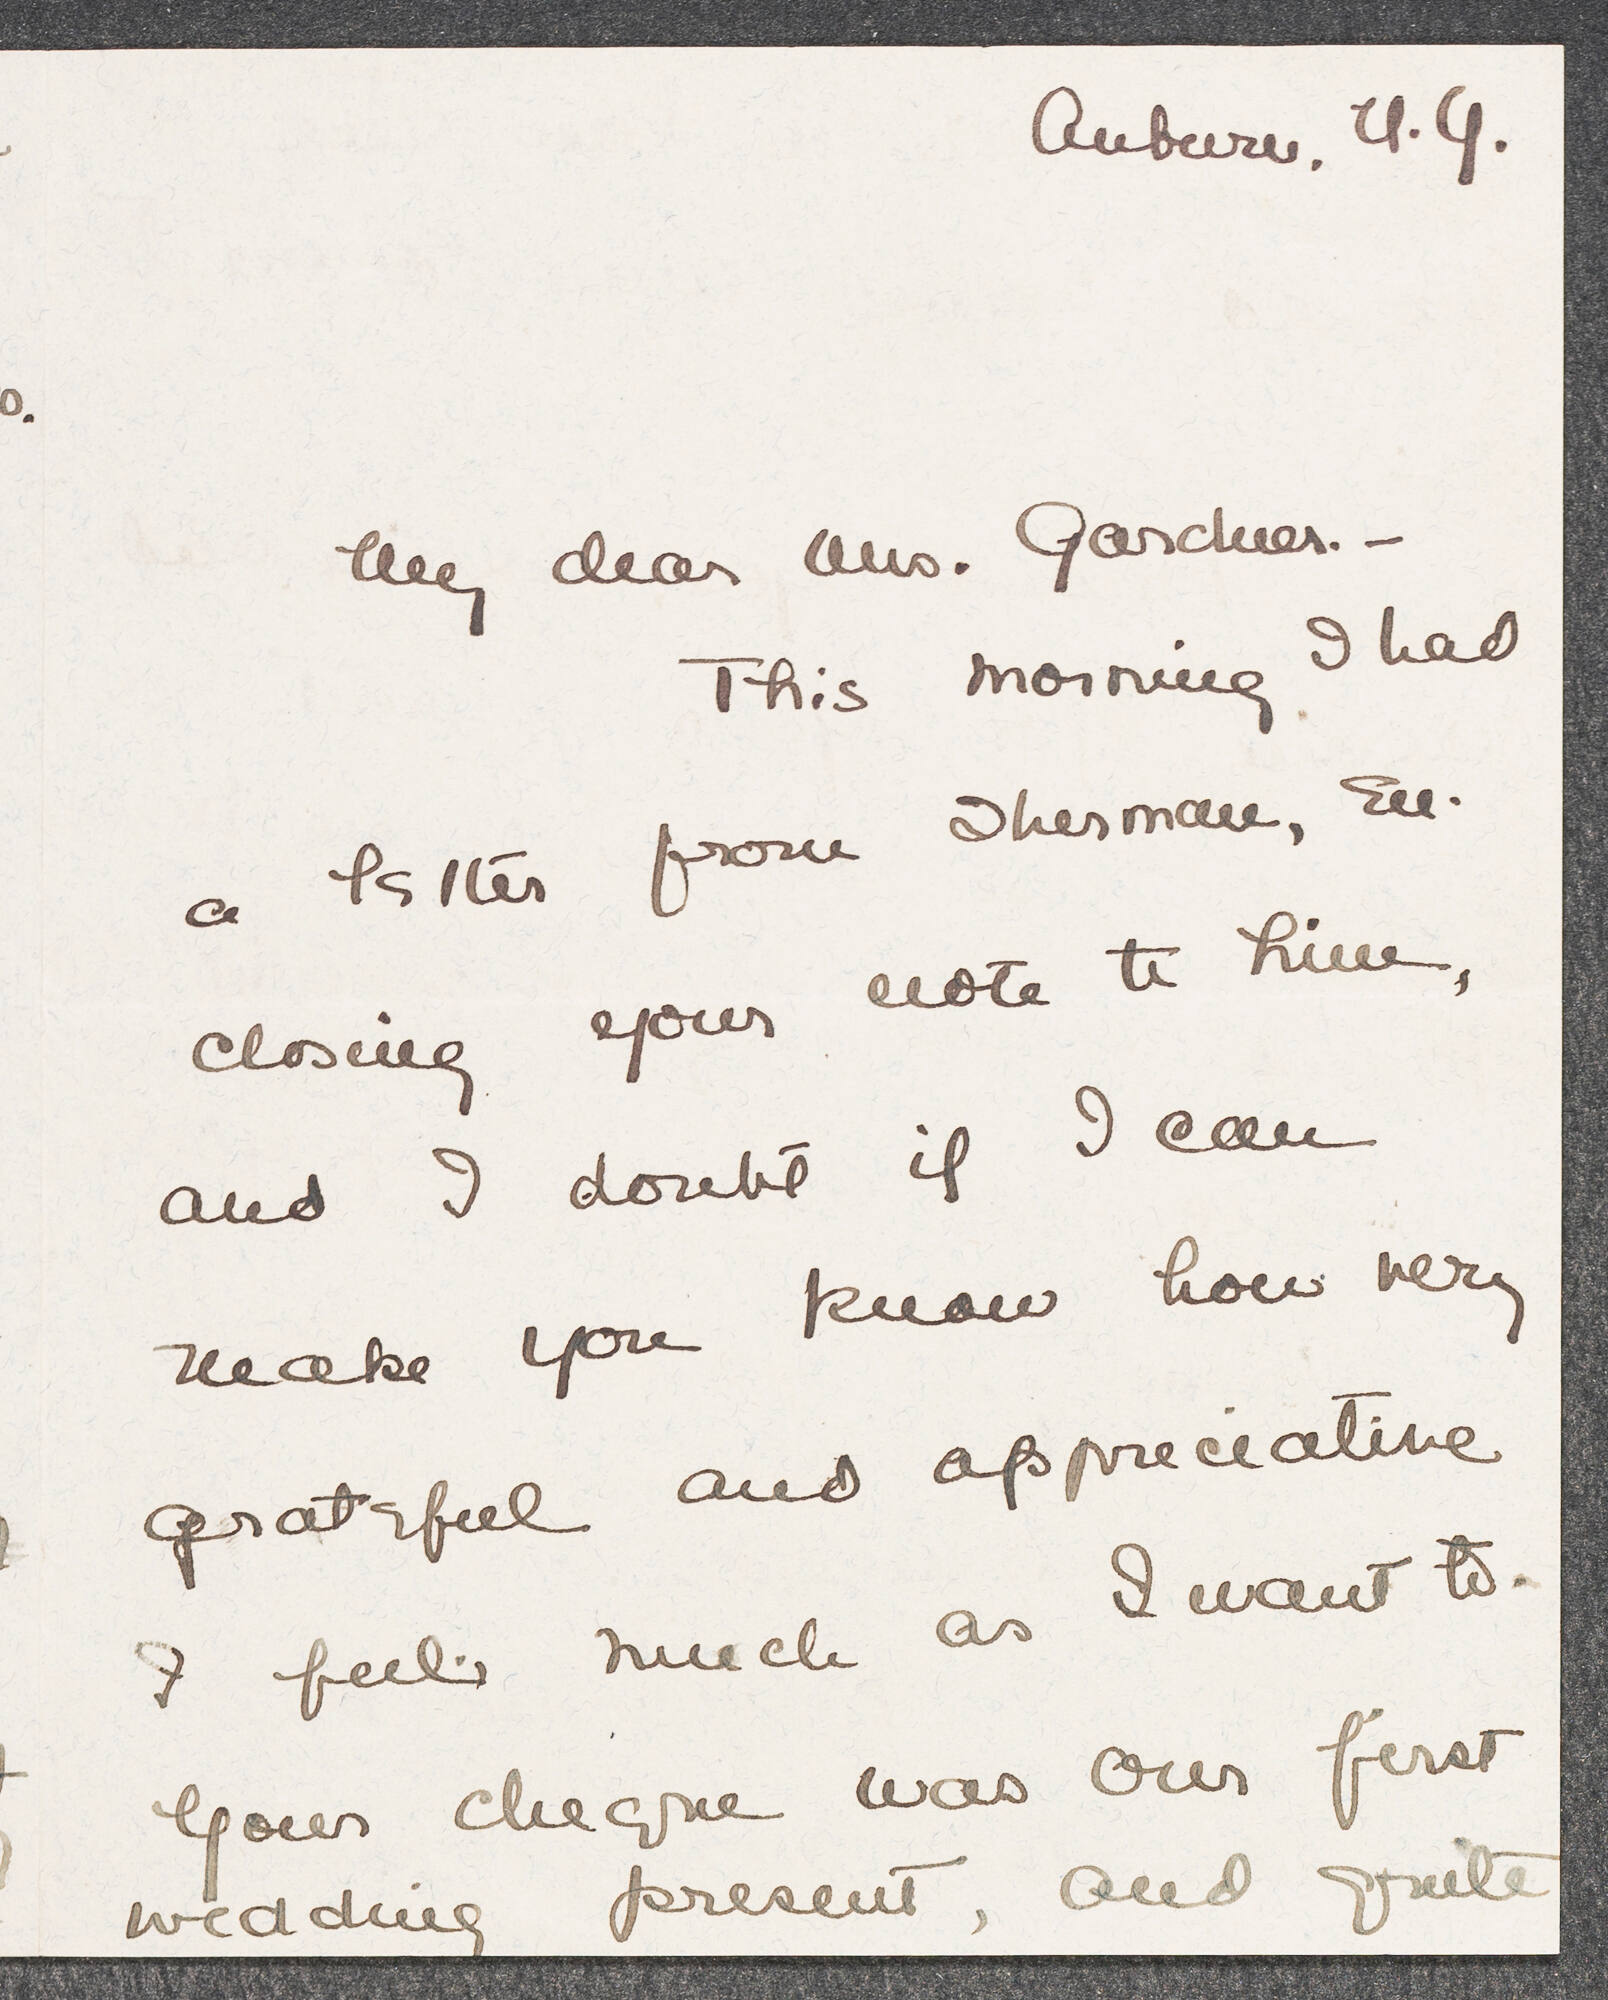 Auburn. N.Y.
My dear Mrs. Gardner.-
This morning I had
a letter from Sherman, en-
closing your note to him,
and I doubt if I can
make you know how very
grateful and appreciative
I feel much as I want to.
Your cheque was our first
wedding present, and quite